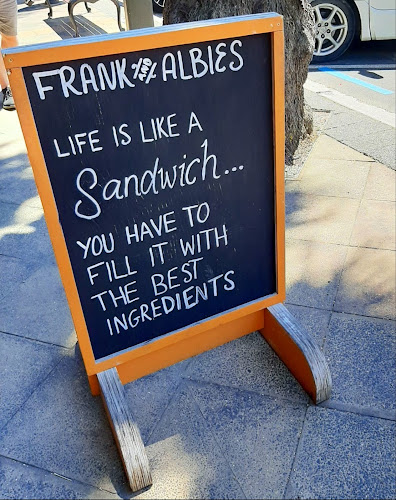 FRANK AND ALBIES
LIFE IS LIKE A
Sandwich...
YOU HAVE TO
FILL IT WITH
THE BEST
INGREDIENTS